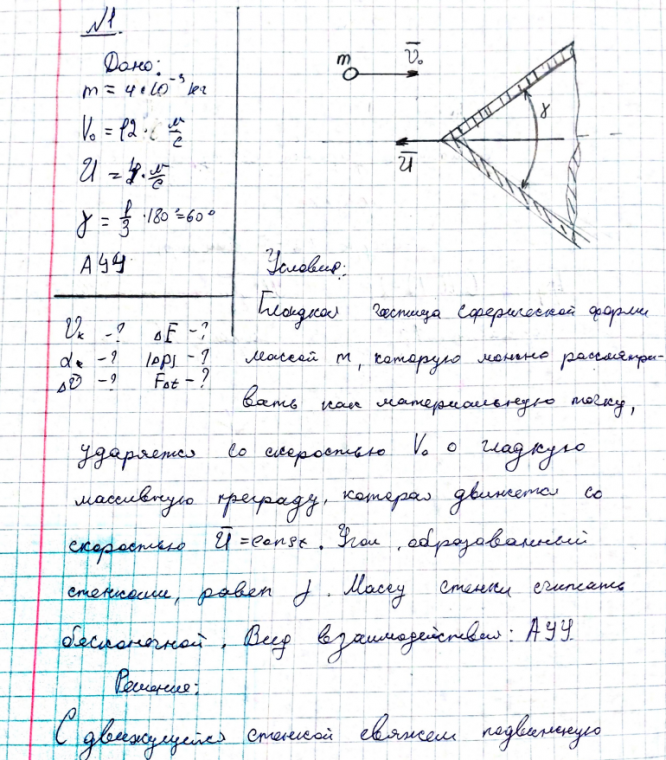 №1
Дано:
m = 4·10⁻³ кг
V₀ = 12 м/с
U = · м/с
γ = 1/3 ·180°=60°
АУУ
m V̄₀
γ
Ū
Условие:
Vк -? ΔE -?
αк -? |Δp| -?
Δv̄ -? FΔt -?
Гладкая частица сферической формы
массой m, которую можно рассматри-
вать как материальную точку,
ударяется со скоростью V₀ о гладкую
массивную преграду, которая движется со
скоростью Ū = const. Угол, образованный
стенками, равен γ. Массу стенки считать
бесконечной. Вид взаимодействия: АУУ
Решение:
С движущейся стенкой свяжем подвижную